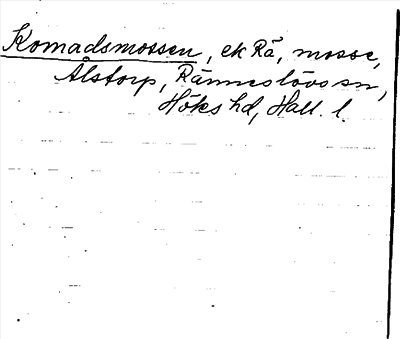 Komadsmossen, ek Rå, mosse,
Alstorp, Ränneslövs sn,
Höks hd, Hall. l.